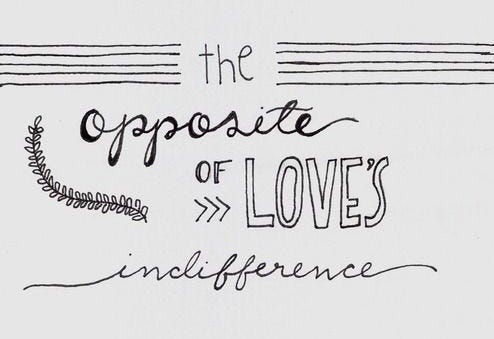 the
opposite
OF LOVE'S
indifference